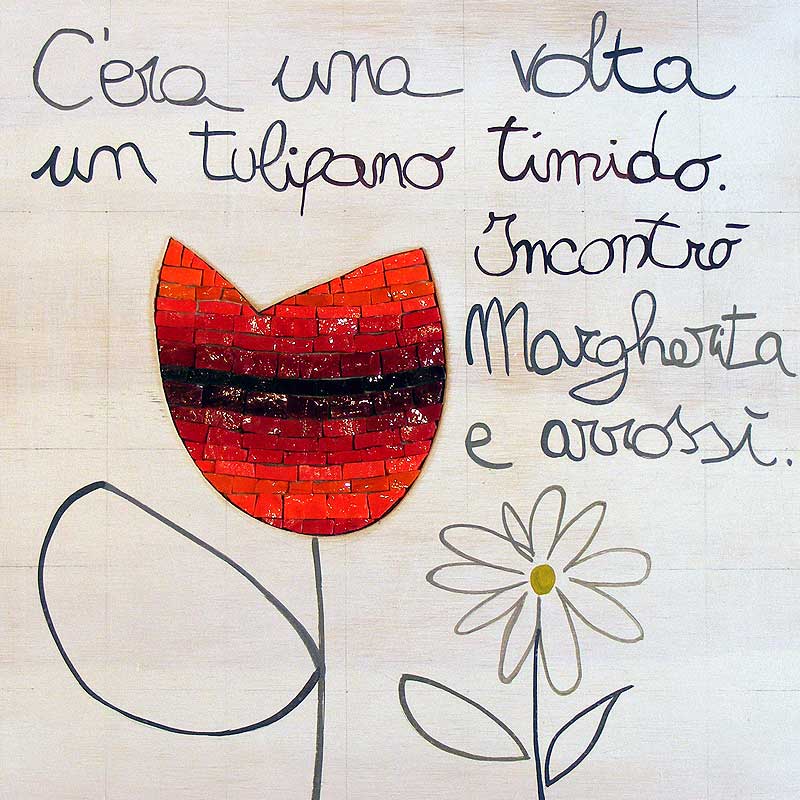 C'era una volta
un tulipano timido.
Incontrò
Margherita
e arrossì.